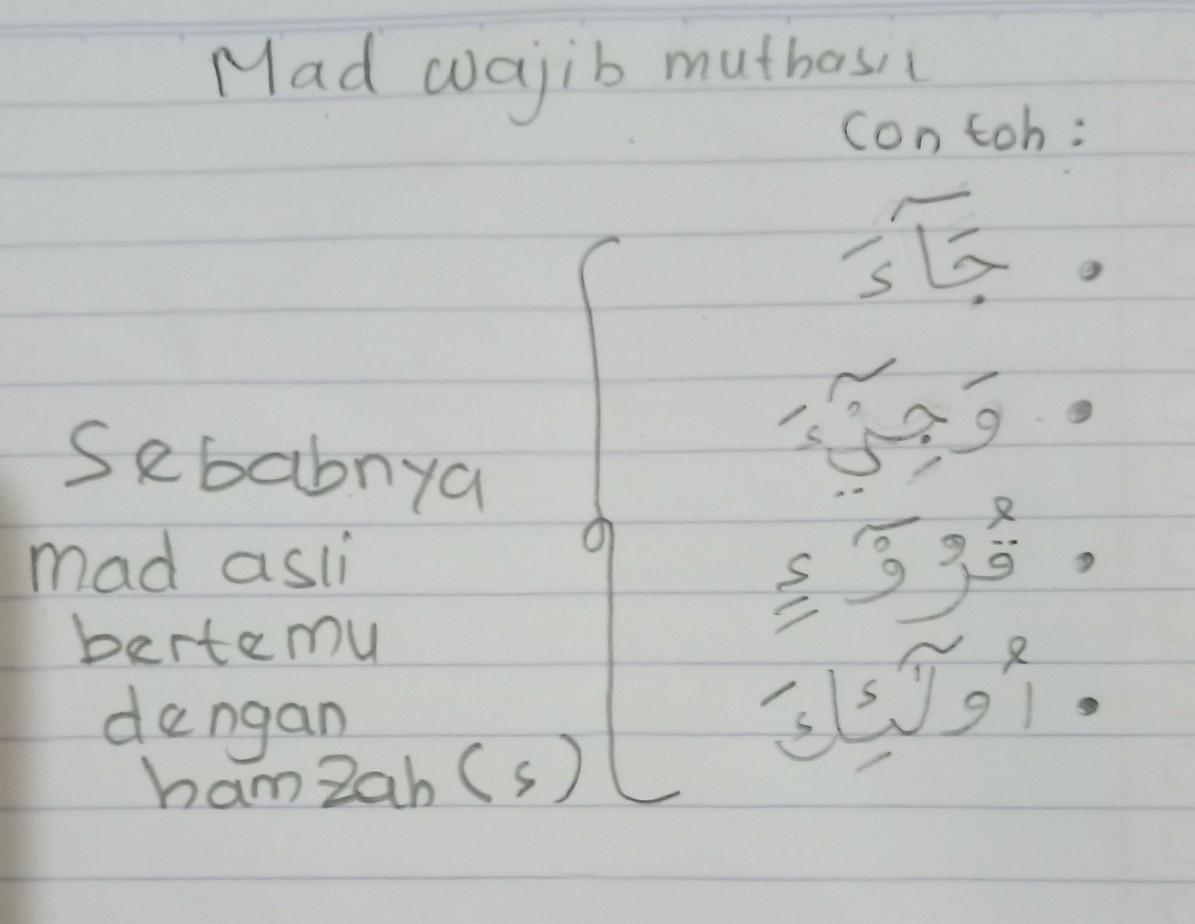 Mad wajib muthasil
Contoh:
جَآءَ
وَجِيْٓءَ
قُرُوْٓءٍ
اُولٰٓئِكَ
Sebabnya
mad asli
bertemu
dengan
hamzah (ء)